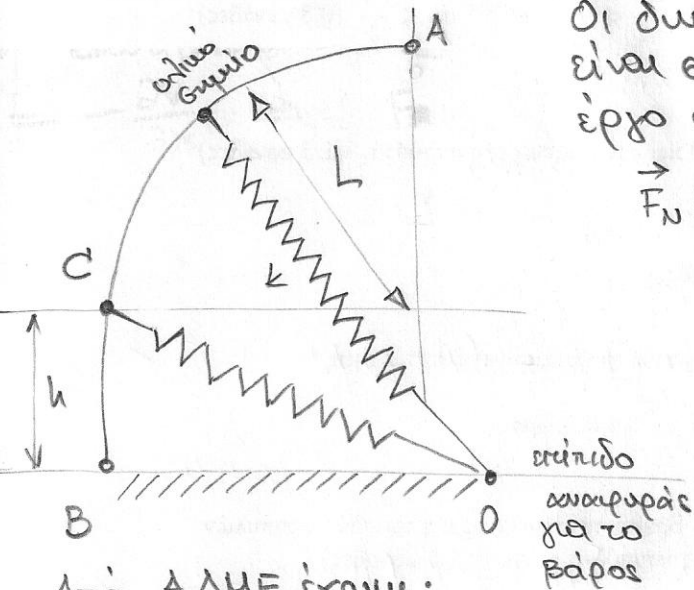 A
Οι δυ
είναι σ
έργο
υλικό
σημείο
L
F_N
C
k
h
επίπεδο
αναφοράς
για το
βάρος
B
O
Από ΑΔΜΕ έχουμε: